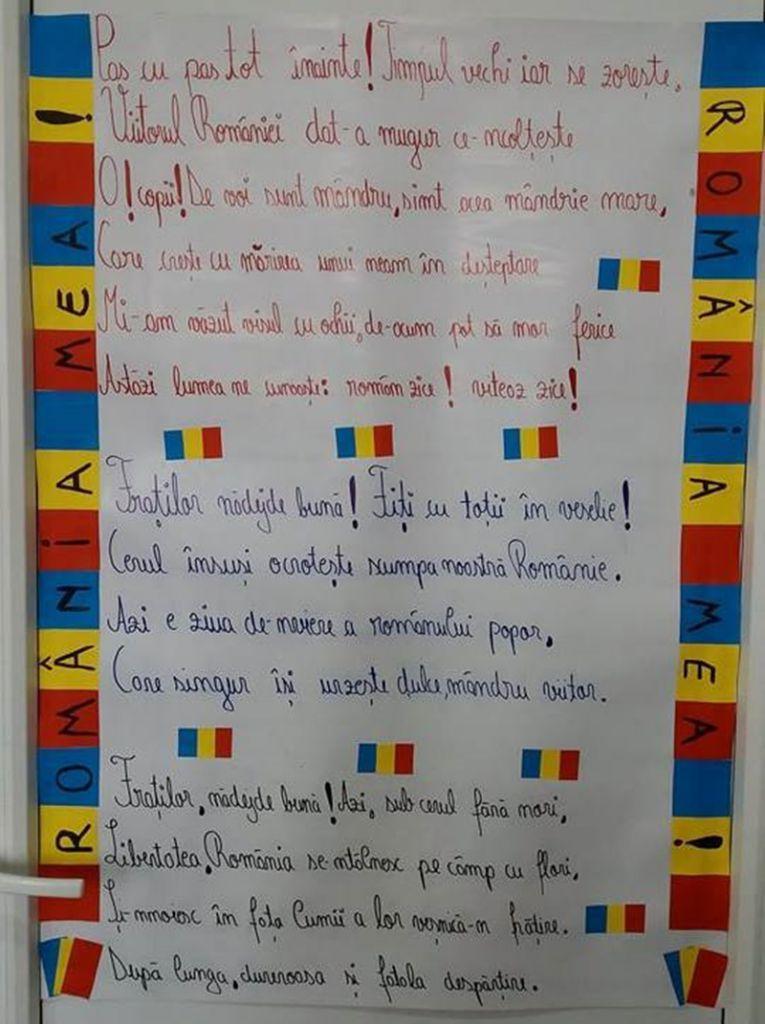 ROMÂNIA MEA!
Pas cu pas tot înainte! Timpul vechi iar se zorește,
Viitorul României dat-a mugur ce-ncolțește
O! copii! De voi sunt mândru, simt acea mândrie mare,
Care crește cu mărirea unui neam în deșteptare
Mi-am văzut visul cu ochii, de-acum pot să mor ferice
Astăzi lumea ne cunoaște: român zice! viteaz zice!
Fraților nădejde bună! Fiți cu toții în veselie!
Cerul însuși ocrotește scumpa noastră Românie.
Azi e ziua de-nviere a românului popor,
Care singur își urzește dulce, mândru viitor.
Fraților, nădejde bună! Azi, sub cerul fără nori,
Libertatea, România se-ntâlnesc pe câmp cu flori,
Și-nnoiesc în fața lumii a lor veșnică-n frățire.
După lunga, dureroasa și fatala despărțire.
ROMÂNIA MEA!